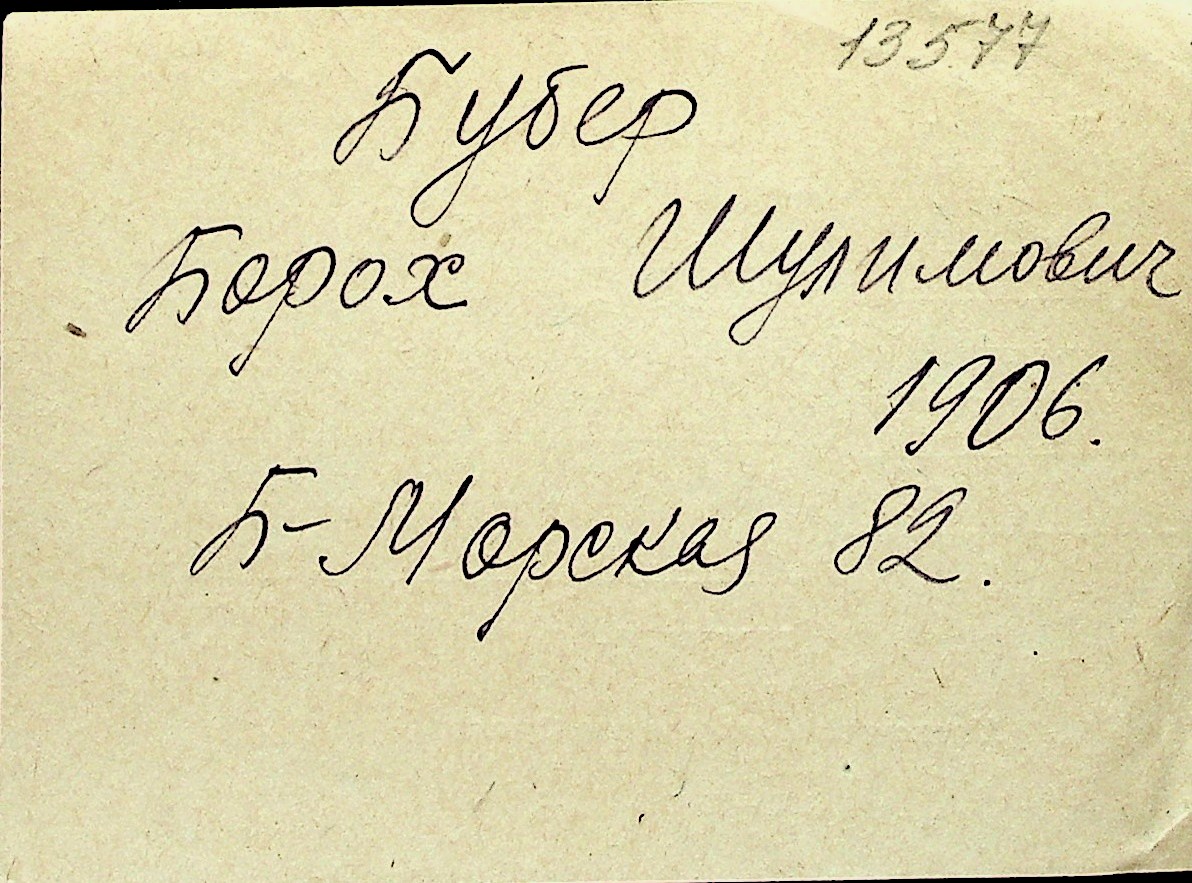 13577
Бубер
Борох Шулимович
1906.
Б-Морская 82.